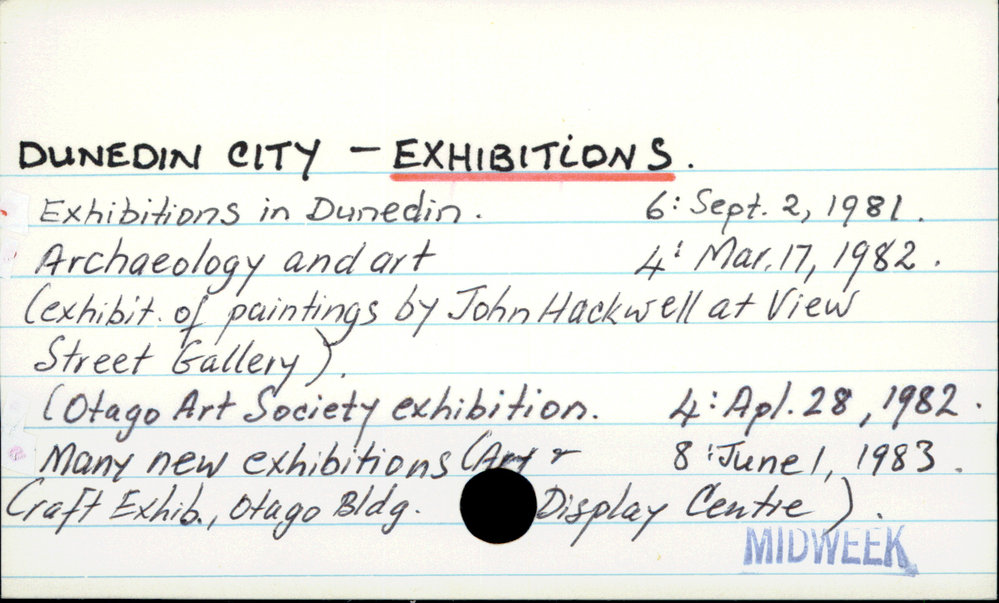 DUNEDIN CITY - EXHIBITIONS.
Exhibitions in Dunedin. 6: Sept. 2, 1981.
Archaeology and art 4: Mar. 17, 1982.
(exhibit. of paintings by John Hackwell at View
Street Gallery).
(Otago Art Society exhibition. 4: Apl. 28, 1982.
Many new exhibitions (Art & 8: June 1, 1983.
Craft Exhib., Otago Bldg. Display Centre).
MIDWEEK